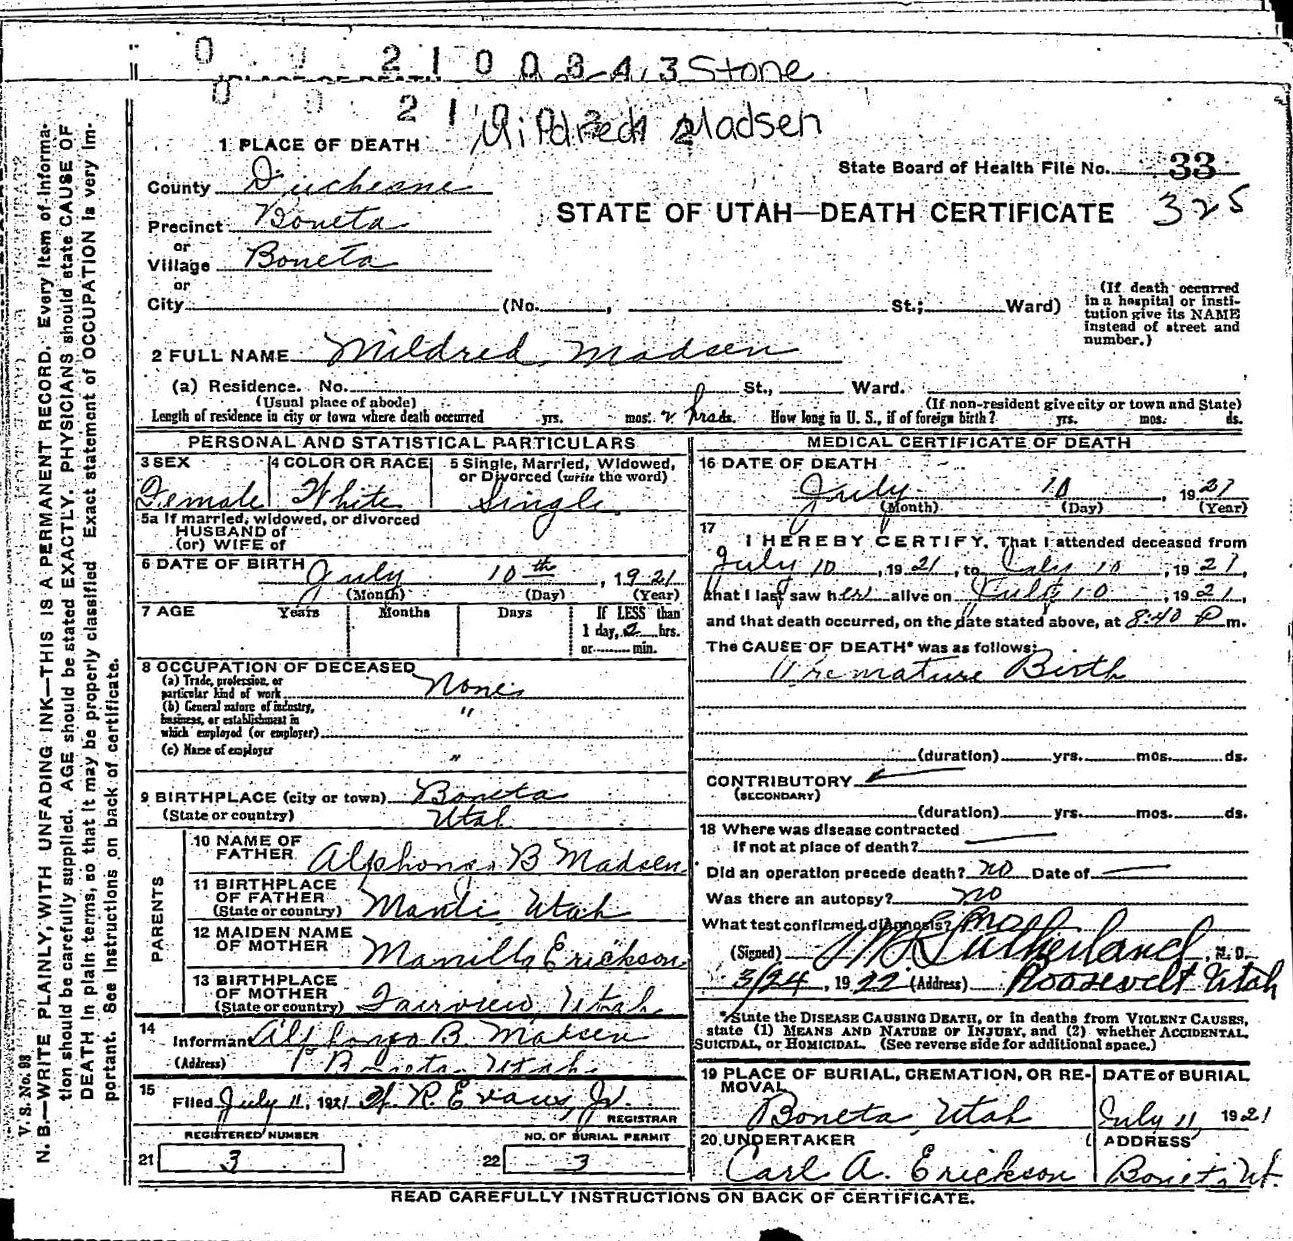 0 0 2 1 0 0 3 4 3 Stone
0 0 2 1
Mildred Madsen
1 PLACE OF DEATH
State Board of Health File No. 33
County Duchesne
STATE OF UTAH—DEATH CERTIFICATE 325
Precinct Boneta
or
Village Boneta
or
City (No. , St.; Ward)
(If death occurred in a hospital or insti-
tution give its NAME
instead of street and
number.)
2 FULL NAME Mildred Madsen
(a) Residence. No. St., Ward.
(Usual place of abode) (If non-resident give city or town and State)
Length of residence in city or town where death occurred yrs. mos. 2 hrs ds. How long in U. S., if of foreign birth? yrs. mos. ds.
PERSONAL AND STATISTICAL PARTICULARS
3 SEX Female
4 COLOR OR RACE White
5 Single, Married, Widowed,
or Divorced (write the word)
Single
5a If married, widowed, or divorced
HUSBAND of
(or) WIFE of
6 DATE OF BIRTH July 10th, 1921
(Month) (Day) (Year)
7 AGE Years Months Days If LESS than
1 day, 2 hrs.
or min.
8 OCCUPATION OF DECEASED
(a) Trade, profession, or
particular kind of work None
(b) General nature of industry,
business, or establishment in
which employed (or employer) "
(c) Name of employer "
9 BIRTHPLACE (city or town) Boneta
(State or country) Utah
PARENTS
10 NAME OF
FATHER Alphonzo B Madsen
11 BIRTHPLACE
OF FATHER
(State or country) Manti Utah
12 MAIDEN NAME
OF MOTHER Manilla Erickson
13 BIRTHPLACE
OF MOTHER
(State or country) Fairview Utah
14 Informant Alphonzo B. Madsen
(Address) Boneta Utah
15 Filed July 11, 1921 R Evans, Jr.
REGISTRAR
REGISTERED NUMBER NO. OF BURIAL PERMIT
21 3 22 3
MEDICAL CERTIFICATE OF DEATH
16 DATE OF DEATH
July 10, 1921
(Month) (Day) (Year)
17
I HEREBY CERTIFY, That I attended deceased from
July 10, 1921, to July 10, 1921,
that I last saw her alive on July 10, 1921,
and that death occurred, on the date stated above, at 8:40 P m.
The CAUSE OF DEATH* was as follows:
Premature Birth
(duration) yrs. mos. ds.
CONTRIBUTORY
(SECONDARY)
(duration) yrs. mos. ds.
18 Where was disease contracted
if not at place of death?
Did an operation precede death? no Date of
Was there an autopsy? no
What test confirmed diagnosis?
(Signed) Sutherland, M. D.
3/24, 1922 (Address) Roosevelt Utah
*State the DISEASE CAUSING DEATH, or in deaths from VIOLENT CAUSES,
state (1) MEANS AND NATURE OF INJURY, and (2) whether ACCIDENTAL,
SUICIDAL, or HOMICIDAL. (See reverse side for additional space.)
19 PLACE OF BURIAL, CREMATION, OR RE-
MOVAL
Boneta, Utah
DATE of BURIAL
July 11 1921
20 UNDERTAKER
Carl A. Erickson
ADDRESS
Boneta, Ut.
READ CAREFULLY INSTRUCTIONS ON BACK OF CERTIFICATE.
V. S. No. 98
N. B.—WRITE PLAINLY, WITH UNFADING INK—THIS IS A PERMANENT RECORD. Every item of informa-
tion should be carefully supplied. AGE should be stated EXACTLY. PHYSICIANS should state CAUSE OF
DEATH in plain terms, so that it may be properly classified. Exact statement of OCCUPATION is very im-
portant. See instructions on back of certificate.